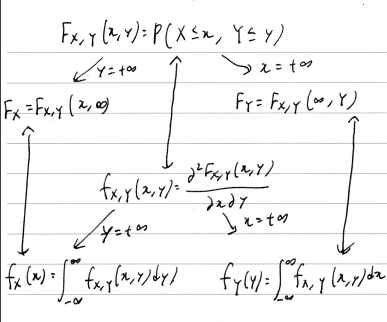 F_{X,Y}(x,y) = P(X ≤ x, Y ≤ y)
y=+∞ x=+∞
F_X = F_{X,Y}(x,∞) F_Y = F_{X,Y}(∞,Y)
f_{X,Y}(x,y) = ∂²F_{X,Y}(x,y) / ∂x∂y
y=+∞ x=+∞
f_X(x) = ∫_{-∞}^{∞} f_{X,Y}(x,y)dy) f_Y(y) = ∫_{-∞}^{∞} f_{X,Y}(x,y)dx